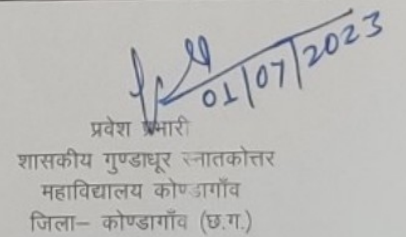 01/07/2023
प्रवेश प्रभारी
शासकीय गुण्डाधूर स्नातकोत्तर
महाविद्यालय कोण्डागाँव
जिला– कोण्डागाँव (छ.ग.)